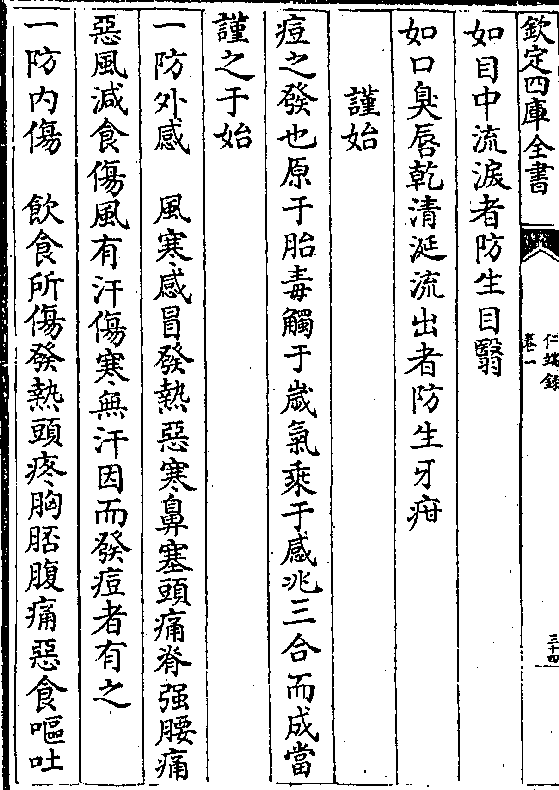 欽定四庫全書
仁端錄
卷一
三十四
如目中流淚者防生目翳
如口臭唇乾清涎流出者防生牙疳
謹始
痘之發也原于胎毒觸于嵗氣乘于感兆三合而成當
謹之于始
一防外感　風寒感冒發熱惡寒鼻塞頭痛脊强腰痛
惡風減食傷風有汗傷寒無汗因而發痘者有之
一防内傷　飲食所傷發熱頭疼胸𦙄腹痛惡食嘔吐